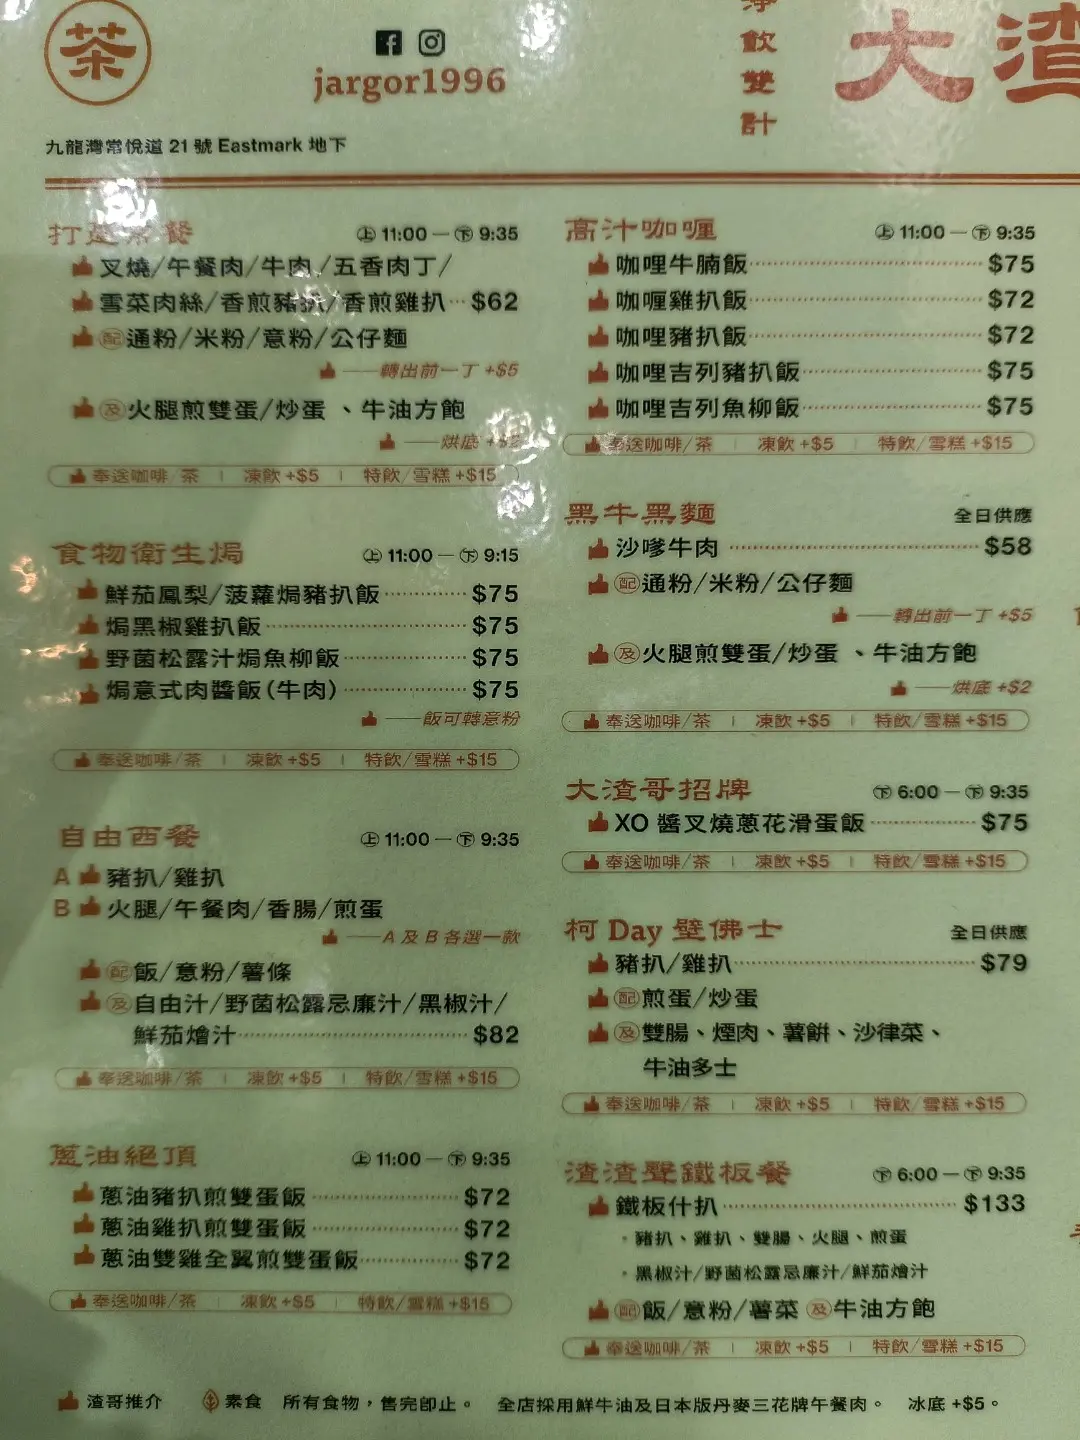 茶
jargor1996
淨飲雙計
大渣
九龍灣常悅道 21 號 Eastmark 地下
打 餐 上 11:00 — 下 9:35
叉燒/午餐肉/牛肉/五香肉丁/
雪菜肉絲/香煎豬扒/香煎雞扒 $62
配 通粉/米粉/意粉/公仔麵
——轉出前一丁 +$5
及 火腿煎雙蛋/炒蛋 、牛油方飽
——烘底
奉送咖啡/茶 | 凍飲 +$5 | 特飲/雪糕 +$15
食物衛生焗 上 11:00 — 下 9:15
鮮茄鳳梨/菠蘿焗豬扒飯 $75
焗黑椒雞扒飯 $75
野菌松露汁焗魚柳飯 $75
焗意式肉醬飯(牛肉) $75
——飯可轉意粉
奉送咖啡/茶 | 凍飲 +$5 | 特飲/雪糕 +$15
自由西餐 上 11:00 — 下 9:35
A 豬扒/雞扒
B 火腿/午餐肉/香腸/煎蛋
——A 及 B 各選一款
配 飯/意粉/薯條
及 自由汁/野菌松露忌廉汁/黑椒汁/
鮮茄燴汁 $82
奉送咖啡/茶 | 凍飲 +$5 | 特飲/雪糕 +$15
蔥油絕頂 上 11:00 — 下 9:35
蔥油豬扒煎雙蛋飯 $72
蔥油雞扒煎雙蛋飯 $72
蔥油雙雞全翼煎雙蛋飯 $72
奉送咖啡/茶 | 凍飲 +$5 | 特飲/雪糕 +$15
高汁咖喱 上 11:00 — 下 9:35
咖哩牛腩飯 $75
咖喱雞扒飯 $72
咖哩豬扒飯 $72
咖哩吉列豬扒飯 $75
咖哩吉列魚柳飯 $75
奉送咖啡/茶 | 凍飲 +$5 | 特飲/雪糕 +$15
黑牛黑麵 全日供應
沙嗲牛肉 $58
配 通粉/米粉/公仔麵
——轉出前一丁 +$5
及 火腿煎雙蛋/炒蛋 、牛油方飽
——烘底 +$2
奉送咖啡/茶 | 凍飲 +$5 | 特飲/雪糕 +$15
大渣哥招牌 下 6:00 — 下 9:35
XO 醬叉燒蔥花滑蛋飯 $75
奉送咖啡/茶 | 凍飲 +$5 | 特飲/雪糕 +$15
柯 Day 壁佛士 全日供應
豬扒/雞扒 $79
配 煎蛋/炒蛋
及 雙腸、煙肉、薯餅、沙律菜、
牛油多士
奉送咖啡/茶 | 凍飲 +$5 | 特飲/雪糕 +$15
渣渣聲鐵板餐 下 6:00 — 下 9:35
鐵板什扒 $133
·豬扒、雞扒、雙腸、火腿、煎蛋
·黑椒汁/野菌松露忌廉汁/鮮茄燴汁
配 飯/意粉/薯菜 及 牛油方飽
奉送咖啡/茶 | 凍飲 +$5 | 特飲/雪糕 +$15
渣哥推介 素食 所有食物，售完即止。 全店採用鮮牛油及日本版丹麥三花牌午餐肉。 冰底 +$5。